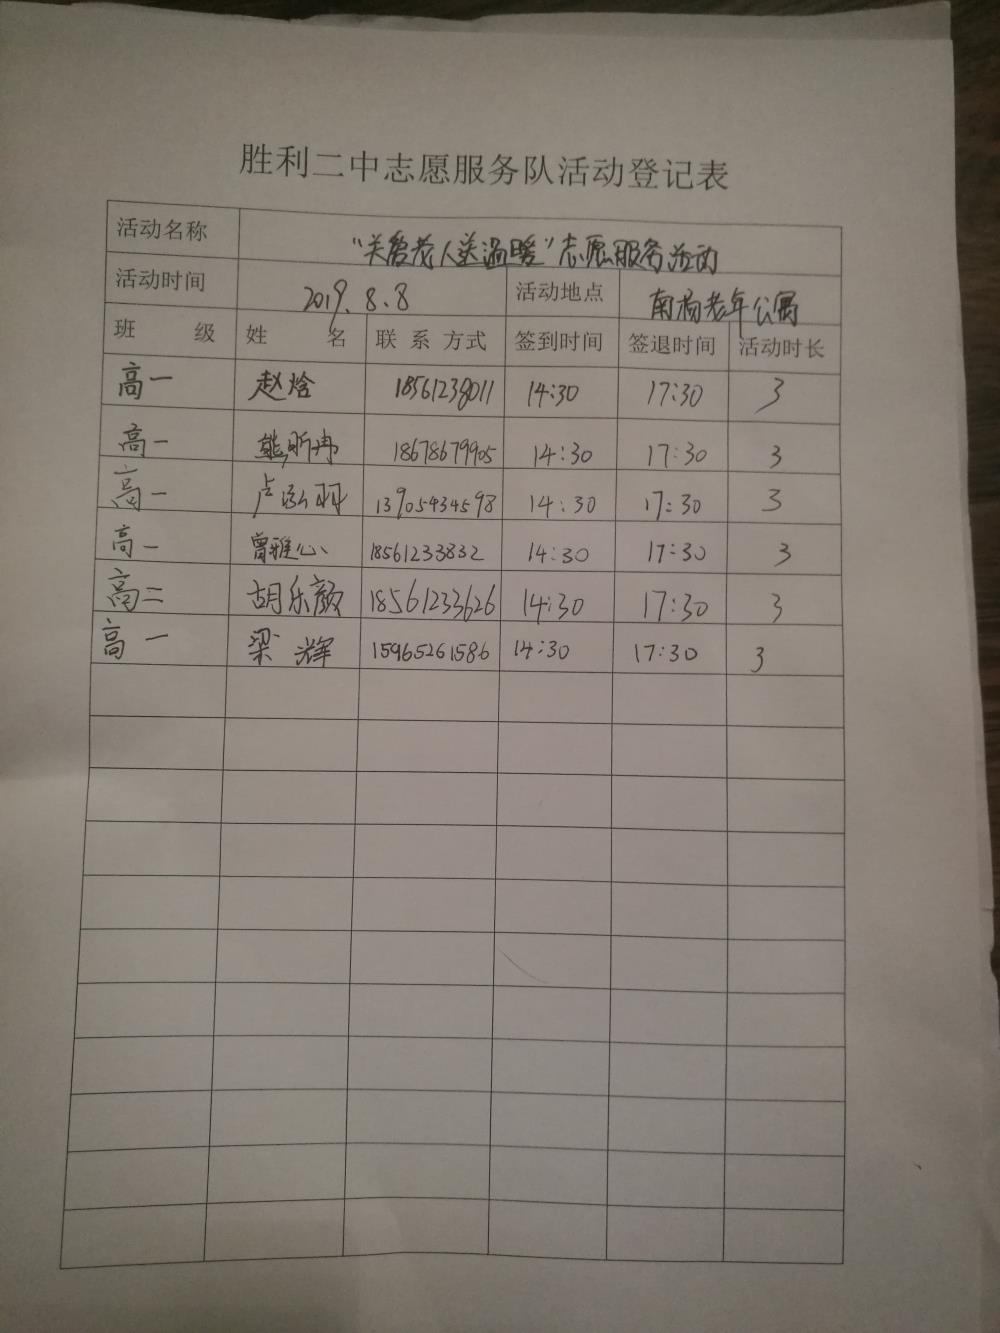 胜利二中志愿服务队活动登记表
活动名称 “关爱老人送温暖”志愿服务活动
活动时间 2019.8.8 活动地点 南杨老年公寓
班 级 姓 名 联 系 方式 签到时间 签退时间 活动时长
高一 赵焓 18561238011 14:30 17:30 3
高一 熊昕冉 18678679905 14:30 17:30 3
高一 卢泓羽 13905434598 14:30 17:30 3
高一 曾雅心 18561233832 14:30 17:30 3
高二 胡乐颜 18561233626 14:30 17:30 3
高一 梁辉 15965261586 14:30 17:30 3